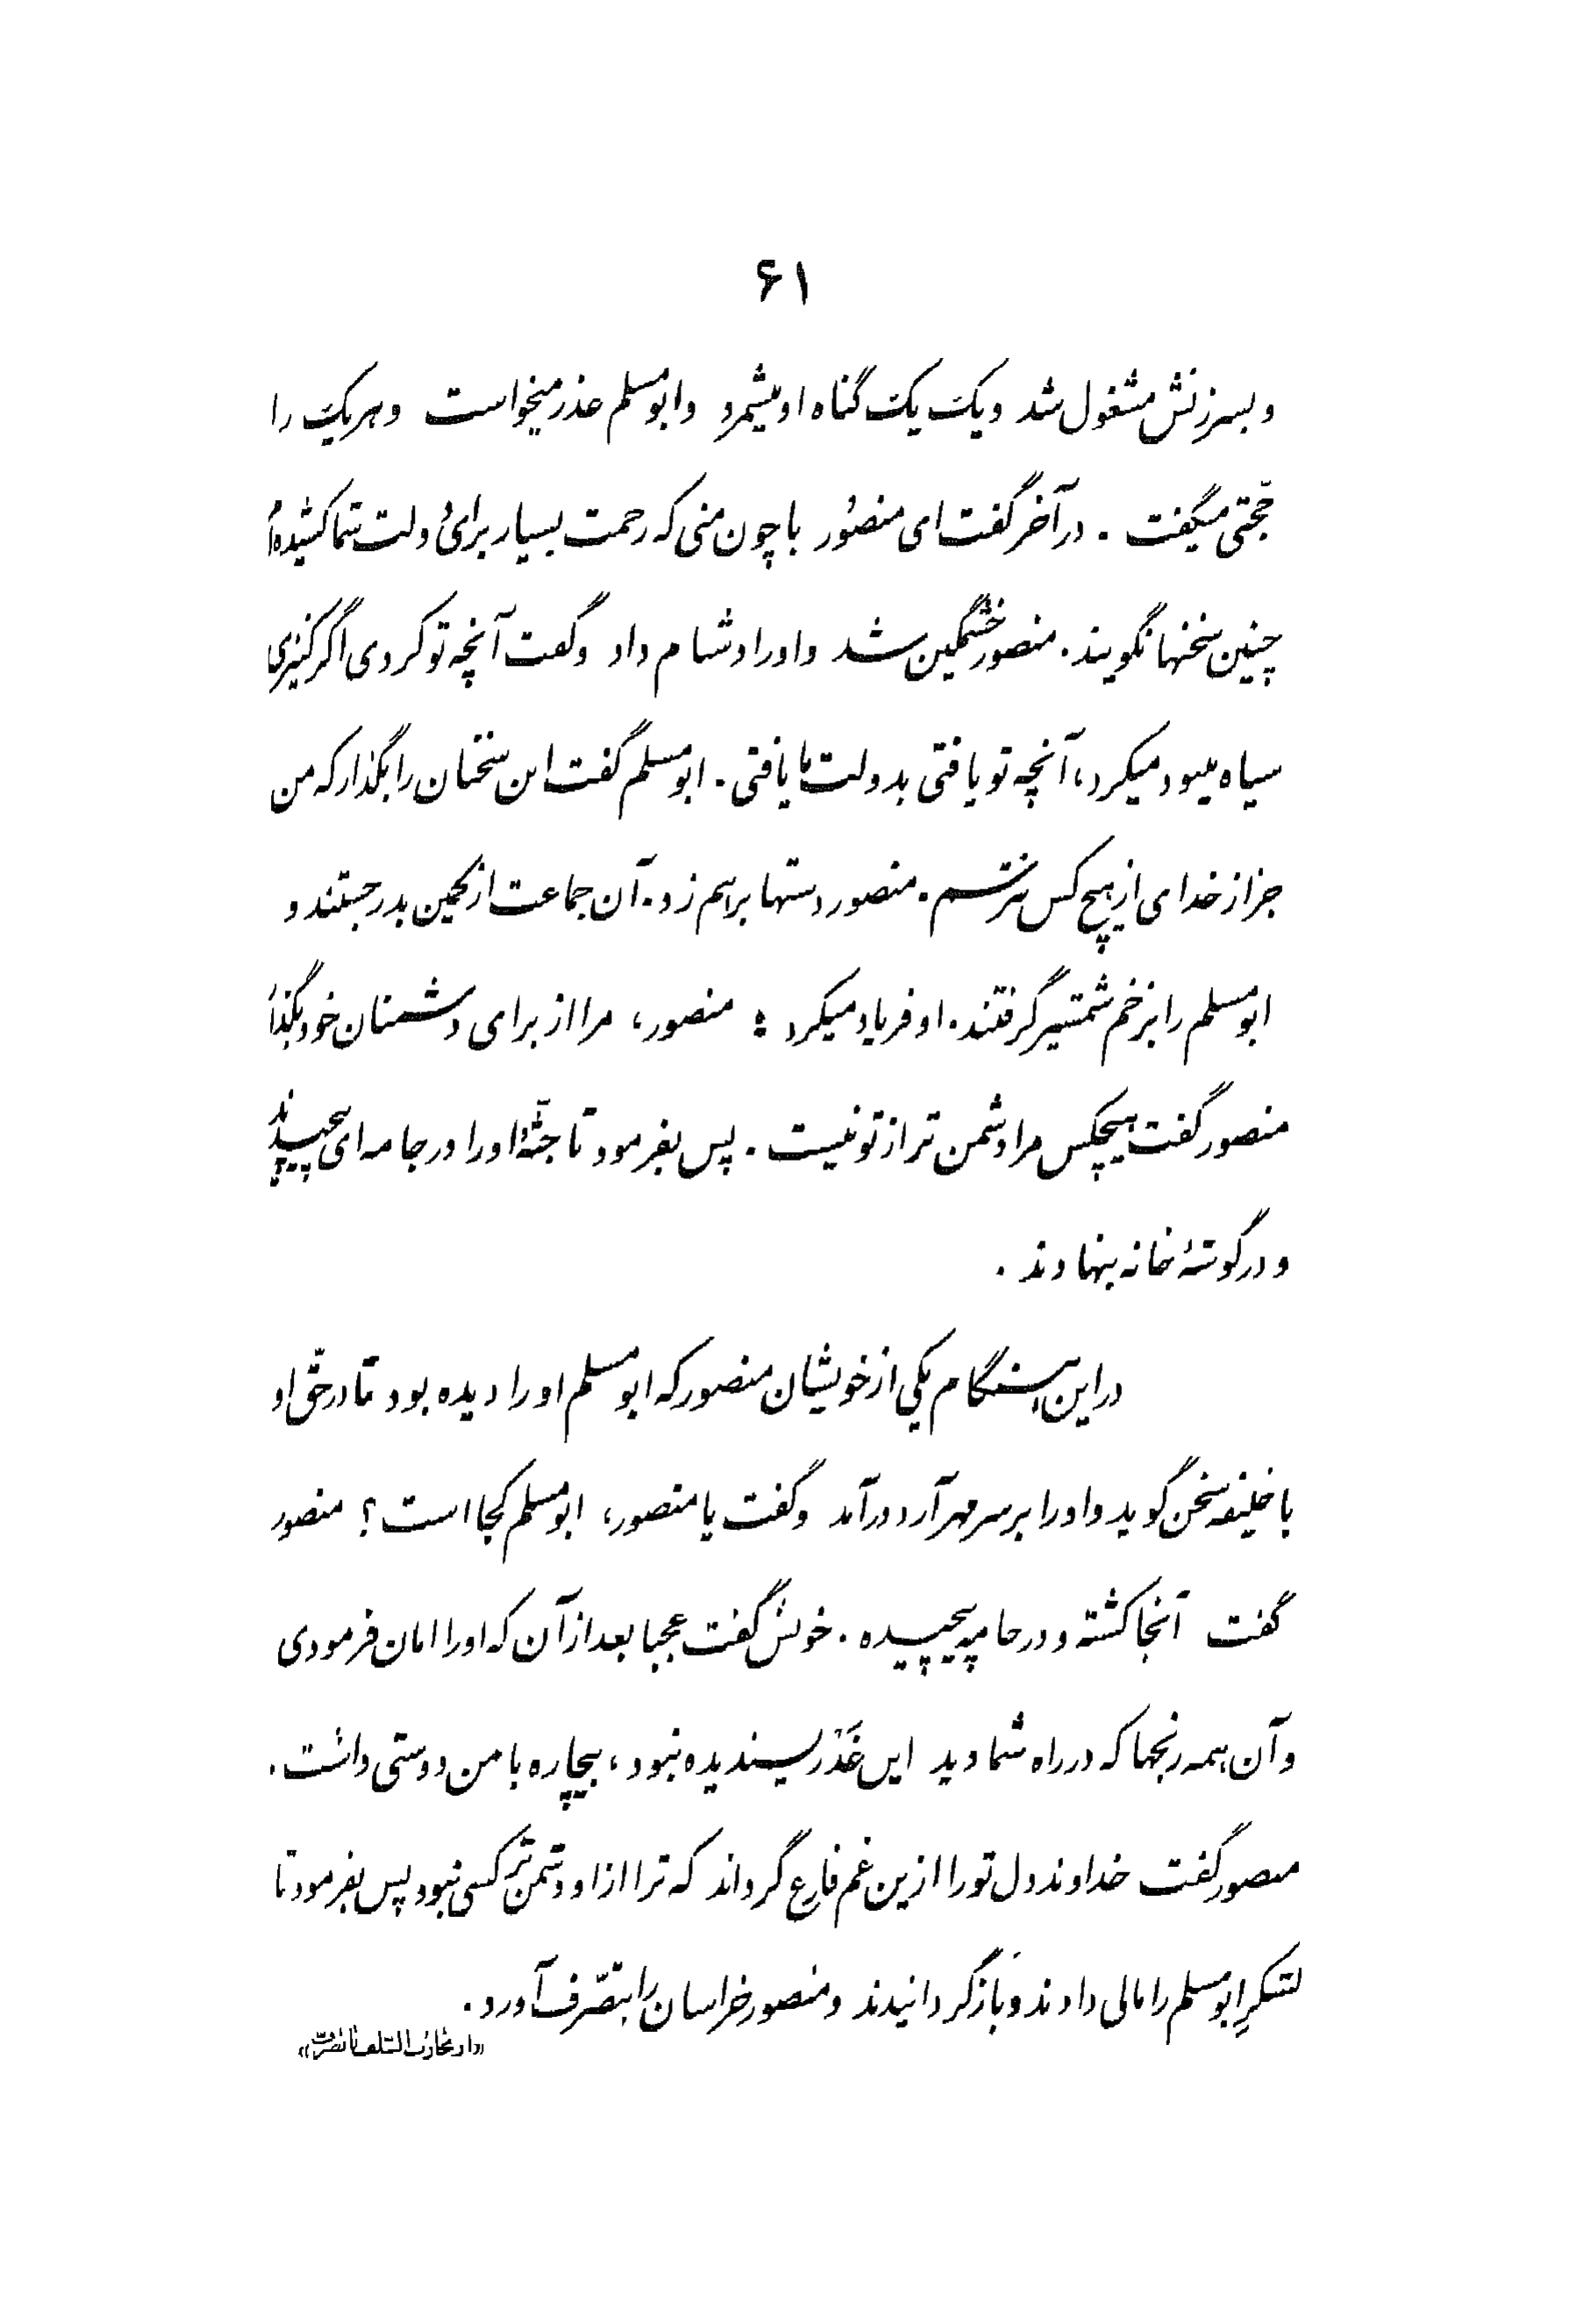 ۶۱
و بسرزنش مشغول شد و یک یک گناه او میشمرد و ابومسلم عذر میخواست و هر یک را
حجّتی میگفت . در آخر گفت ای منصُور با چون منی که زحمت بسیار برای دولت شما کشیده‌ام
چنین سخنها نگویند . منصور خشمگین شد و او را دشنام داد و گفت آنچه تو کردی اگر کنیزی
سیاه میبود میکرد ، آنچه تو یافتی بدولت ما یافتی . ابومسلم گفت این سخنان را بگذار که من
جز از خدای از هیچ کس نترسم . منصور دستها بر هم زد . آن جماعت از کمین بدر جستند و
ابومسلم را بزخم شمشیر گرفتند . او فریاد میکرد : منصور ، مرا از برای دشمنان خود بگذار
منصور گفت هیچکس مرا دشمن تر از تو نیست . پس بفرمود تا جثّهٔ او را در جامه ای پیچیدند
و در گوشهٔ خانه بنهادند .
در این هنگام یکی از خویشان منصور که ابومسلم او را دیده بود تا در حقّ او
با خلیفه سخن گوید و او را بر سر مهر آرد در آمد و گفت یا منصور ، ابومسلم کجا است ؟ منصور
گفت آنجا کشته و در جامه پیچیده . خویش گفت عجبا بعد از آن که او را امان فرمودی
و آن همه رنجها که در راه شما دید این غَدْر پسندیده نبود ، بیچاره با من دوستی داشت .
منصور گفت خداوند دل تو را ازین غم فارغ گرداند که ترا از او دشمن تر کسی نبود پس بفرمود تا
لشکرِ ابومسلم را مالی دادند و بازگردانیدند و منصور خراسان را بتصّرف آورد .
«از تجارب السّلف با تصرف»